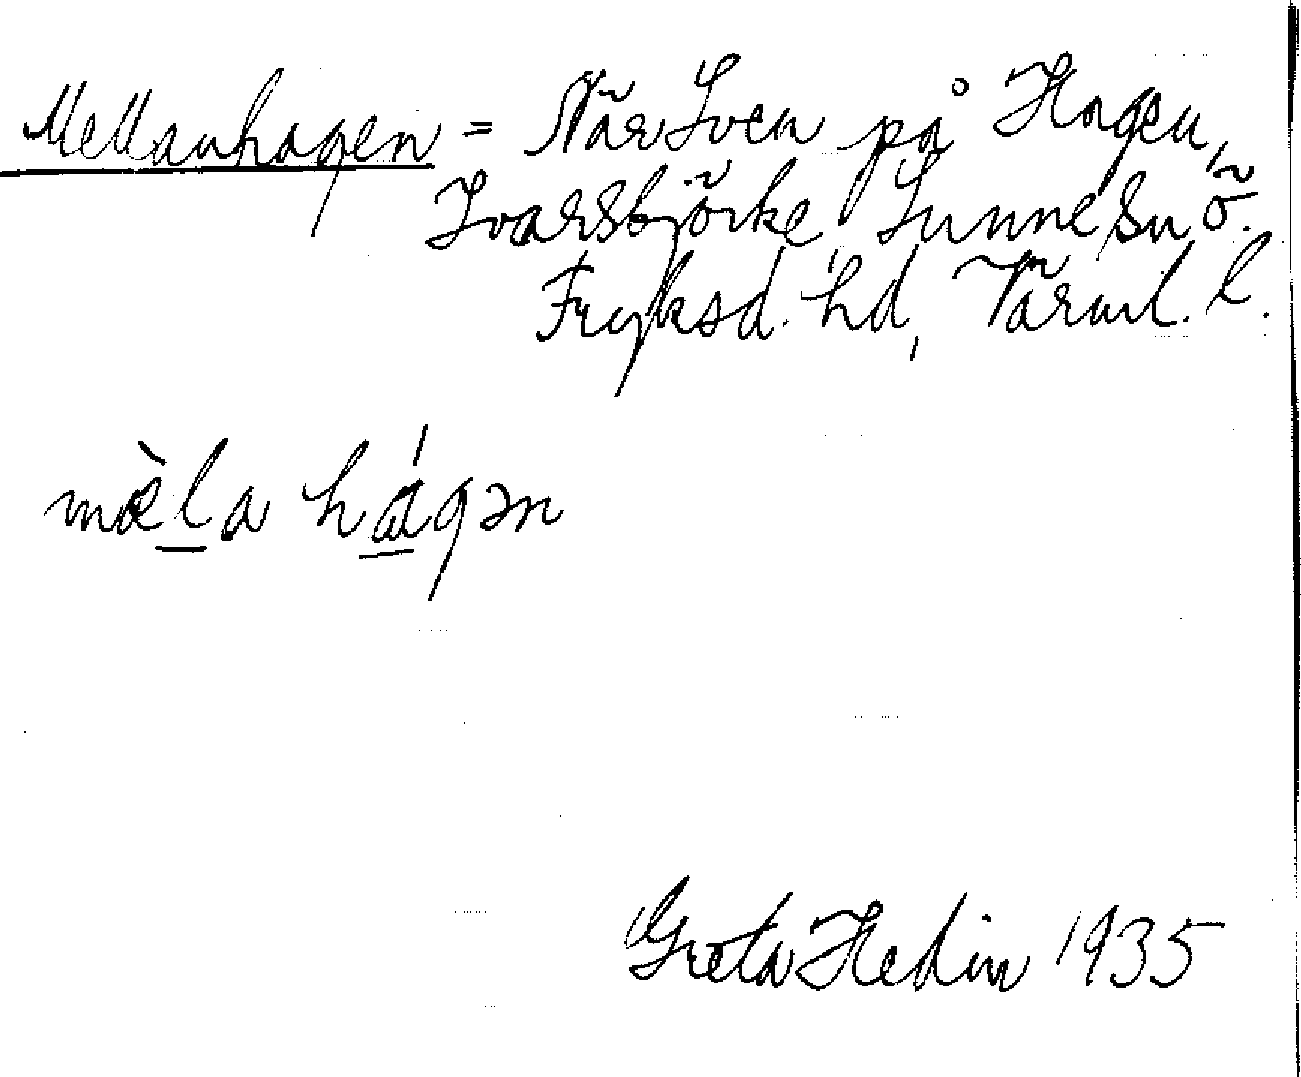 Mellanhagen = När Sven på Hagen,
Ivarsbjörke, Sunne sn ö.
Fryksd. hd, Värml. l.
mæ̀la hágən
Greta Hedin 1935